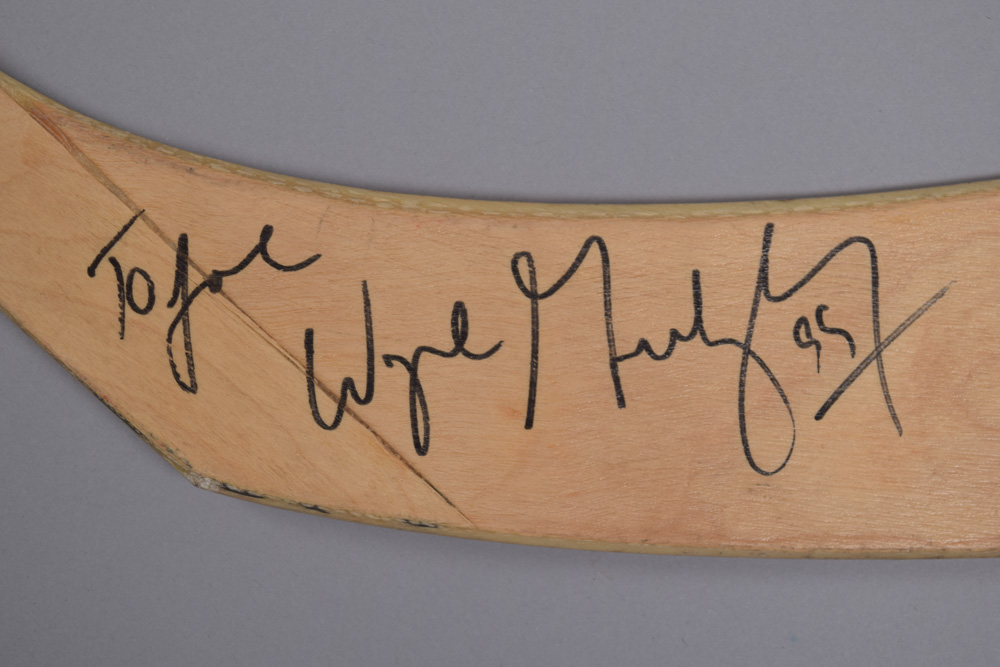 To Joe
Wayne Gretzky 99